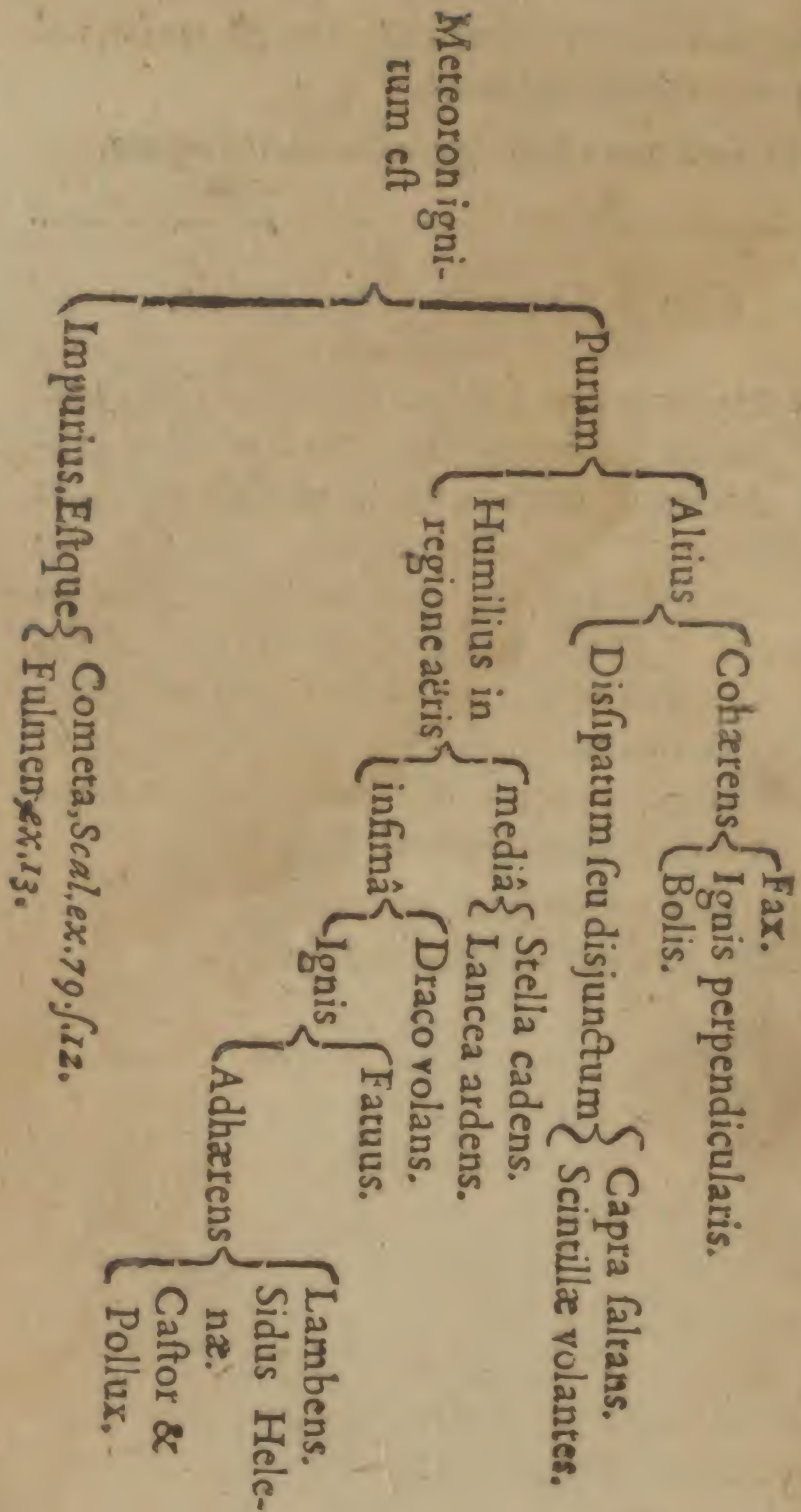 Meteoron igni-
tum eſt
Purum
Altius
Cohærens
Fax.
Ignis perpendicularis.
Bolis.
Diſſipatum ſeu disjunctum
Capra ſaltans.
Scintillæ volantes.
Humilius in
regione aëris
mediâ
Stella cadens.
Lancea ardens.
infimâ
Draco volans.
Ignis
Fatuus.
Adhærens
Lambens.
Sidus Hele-
næ.
Caſtor &
Pollux.
Impurius. Eſtque
Cometa, Scal. ex. 79. ſ. 12.
Fulmen, ex. 13.